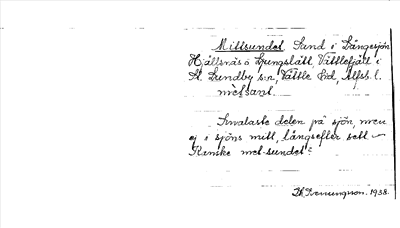 Mittsundet Sund i Långesjön
Hjällsnäs o Ljungslätt, Vättlefjäll i
St. Lundby s:n, Vättle hd, Älfsb. l.
Smalaste delen på sjön, men
ej i sjöns mitt, långsefter sett –
Kanske met-sundet?
1938.